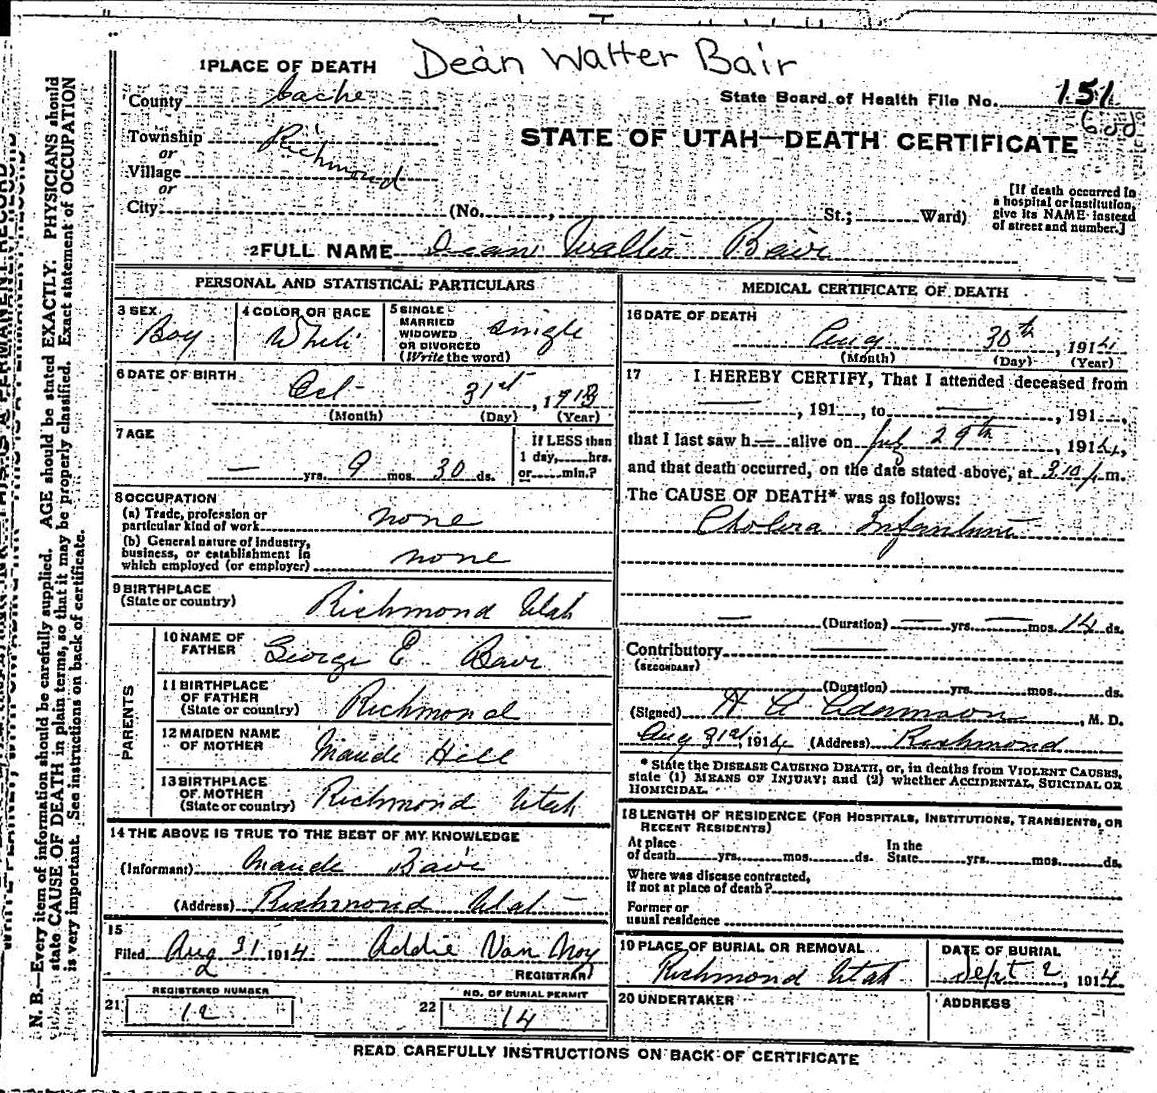 Dean Walter Bair
1 PLACE OF DEATH
County Cache
State Board of Health File No. 151
Township Richmond
or
Village
or
City (No. , St.; Ward)
STATE OF UTAH—DEATH CERTIFICATE
[If death occurred in
a hospital or institution,
give its NAME instead
of street and number.]
2 FULL NAME Dean Walter Bair
PERSONAL AND STATISTICAL PARTICULARS
3 SEX Boy
4 COLOR OR RACE White
5 SINGLE
MARRIED
WIDOWED
OR DIVORCED
(Write the word) Single
6 DATE OF BIRTH Oct 31st, 1913
(Month) (Day) (Year)
7 AGE — yrs. 9 mos. 30 ds.
If LESS than
1 day, hrs.
or min.?
8 OCCUPATION
(a) Trade, profession or
particular kind of work none
(b) General nature of industry,
business, or establishment in
which employed (or employer) none
9 BIRTHPLACE
(State or country) Richmond Utah
PARENTS
10 NAME OF
FATHER George E. Bair
11 BIRTHPLACE
OF FATHER
(State or country) Richmond
12 MAIDEN NAME
OF MOTHER Maude Hill
13 BIRTHPLACE
OF MOTHER
(State or country) Richmond Utah
14 THE ABOVE IS TRUE TO THE BEST OF MY KNOWLEDGE
(Informant) Maude Bair
(Address) Richmond Utah
15
Filed Aug 31 1914 Addie Van Noy
REGISTRAR
21 REGISTERED NUMBER
12
22 NO. OF BURIAL PERMIT
14
MEDICAL CERTIFICATE OF DEATH
16 DATE OF DEATH
Aug 30th, 1914
(Month) (Day) (Year)
17 I HEREBY CERTIFY, That I attended deceased from
—, 191 , to —, 191 ,
that I last saw h— alive on July 29th, 1914,
and that death occurred, on the date stated above, at 3 10 P m.
The CAUSE OF DEATH* was as follows:
Cholera Infantum
— (Duration) — yrs. — mos. 14 ds.
Contributory —
(SECONDARY)
(Duration) yrs. mos. ds.
(Signed) H A Adamson, M. D.
Aug 31st, 1914 (Address) Richmond
* State the DISEASE CAUSING DEATH, or, in deaths from VIOLENT CAUSES,
state (1) MEANS OF INJURY; and (2) whether ACCIDENTAL, SUICIDAL OR
HOMICIDAL.
18 LENGTH OF RESIDENCE (FOR HOSPITALS, INSTITUTIONS, TRANSIENTS, OR
RECENT RESIDENTS)
At place
of death yrs. mos. ds.
In the
State yrs. mos. ds.
Where was disease contracted,
if not at place of death?
Former or
usual residence
19 PLACE OF BURIAL OR REMOVAL
Richmond Utah
DATE OF BURIAL
Sept 2, 1914
20 UNDERTAKER
ADDRESS
READ CAREFULLY INSTRUCTIONS ON BACK OF CERTIFICATE
N. B.—Every item of information should be carefully supplied. AGE should be stated EXACTLY. PHYSICIANS should
state CAUSE OF DEATH in plain terms, so that it may be properly classified. Exact statement of OCCUPATION
is very important. See instructions on back of certificate.